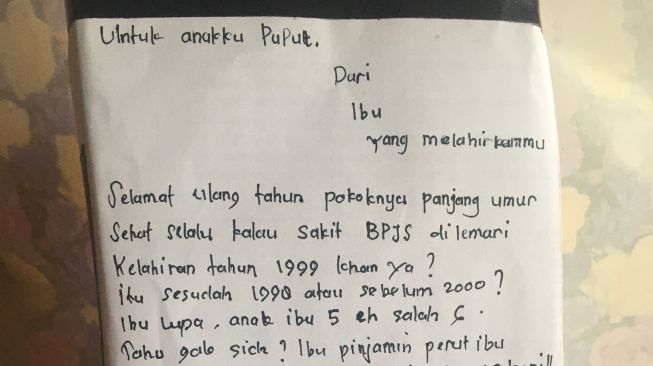 Untuk anakku Puput.
Dari
Ibu
yang melahirkanmu
Selamat ulang tahun pokoknya panjang umur
Sehat selalu kalau sakit BPJS dilemari
Kelahiran tahun 1999 Ichan ya?
itu sesudah 1998 atau sebelum 2000?
Ibu lupa, anak ibu 5 eh salah 6.
Tahu gak sich? Ibu pinjamin perut ibu